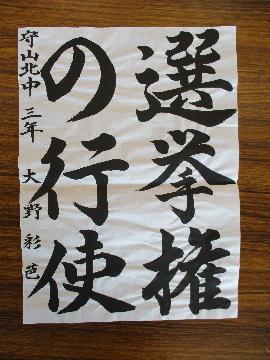 選挙権
の行使
守山北中 三年 大野彩芭